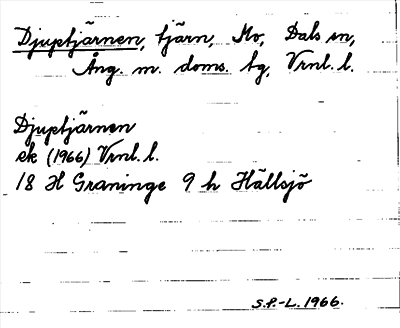 Djuptjärnen, tjärn, Mo, Dals sn,
Ång. m. doms. tg, Vrnl. l.
Djuptjärnen
ek (1966) Vrnl. l.
18 H Graninge 9 h Hällsjö
S.P.-L. 1966.